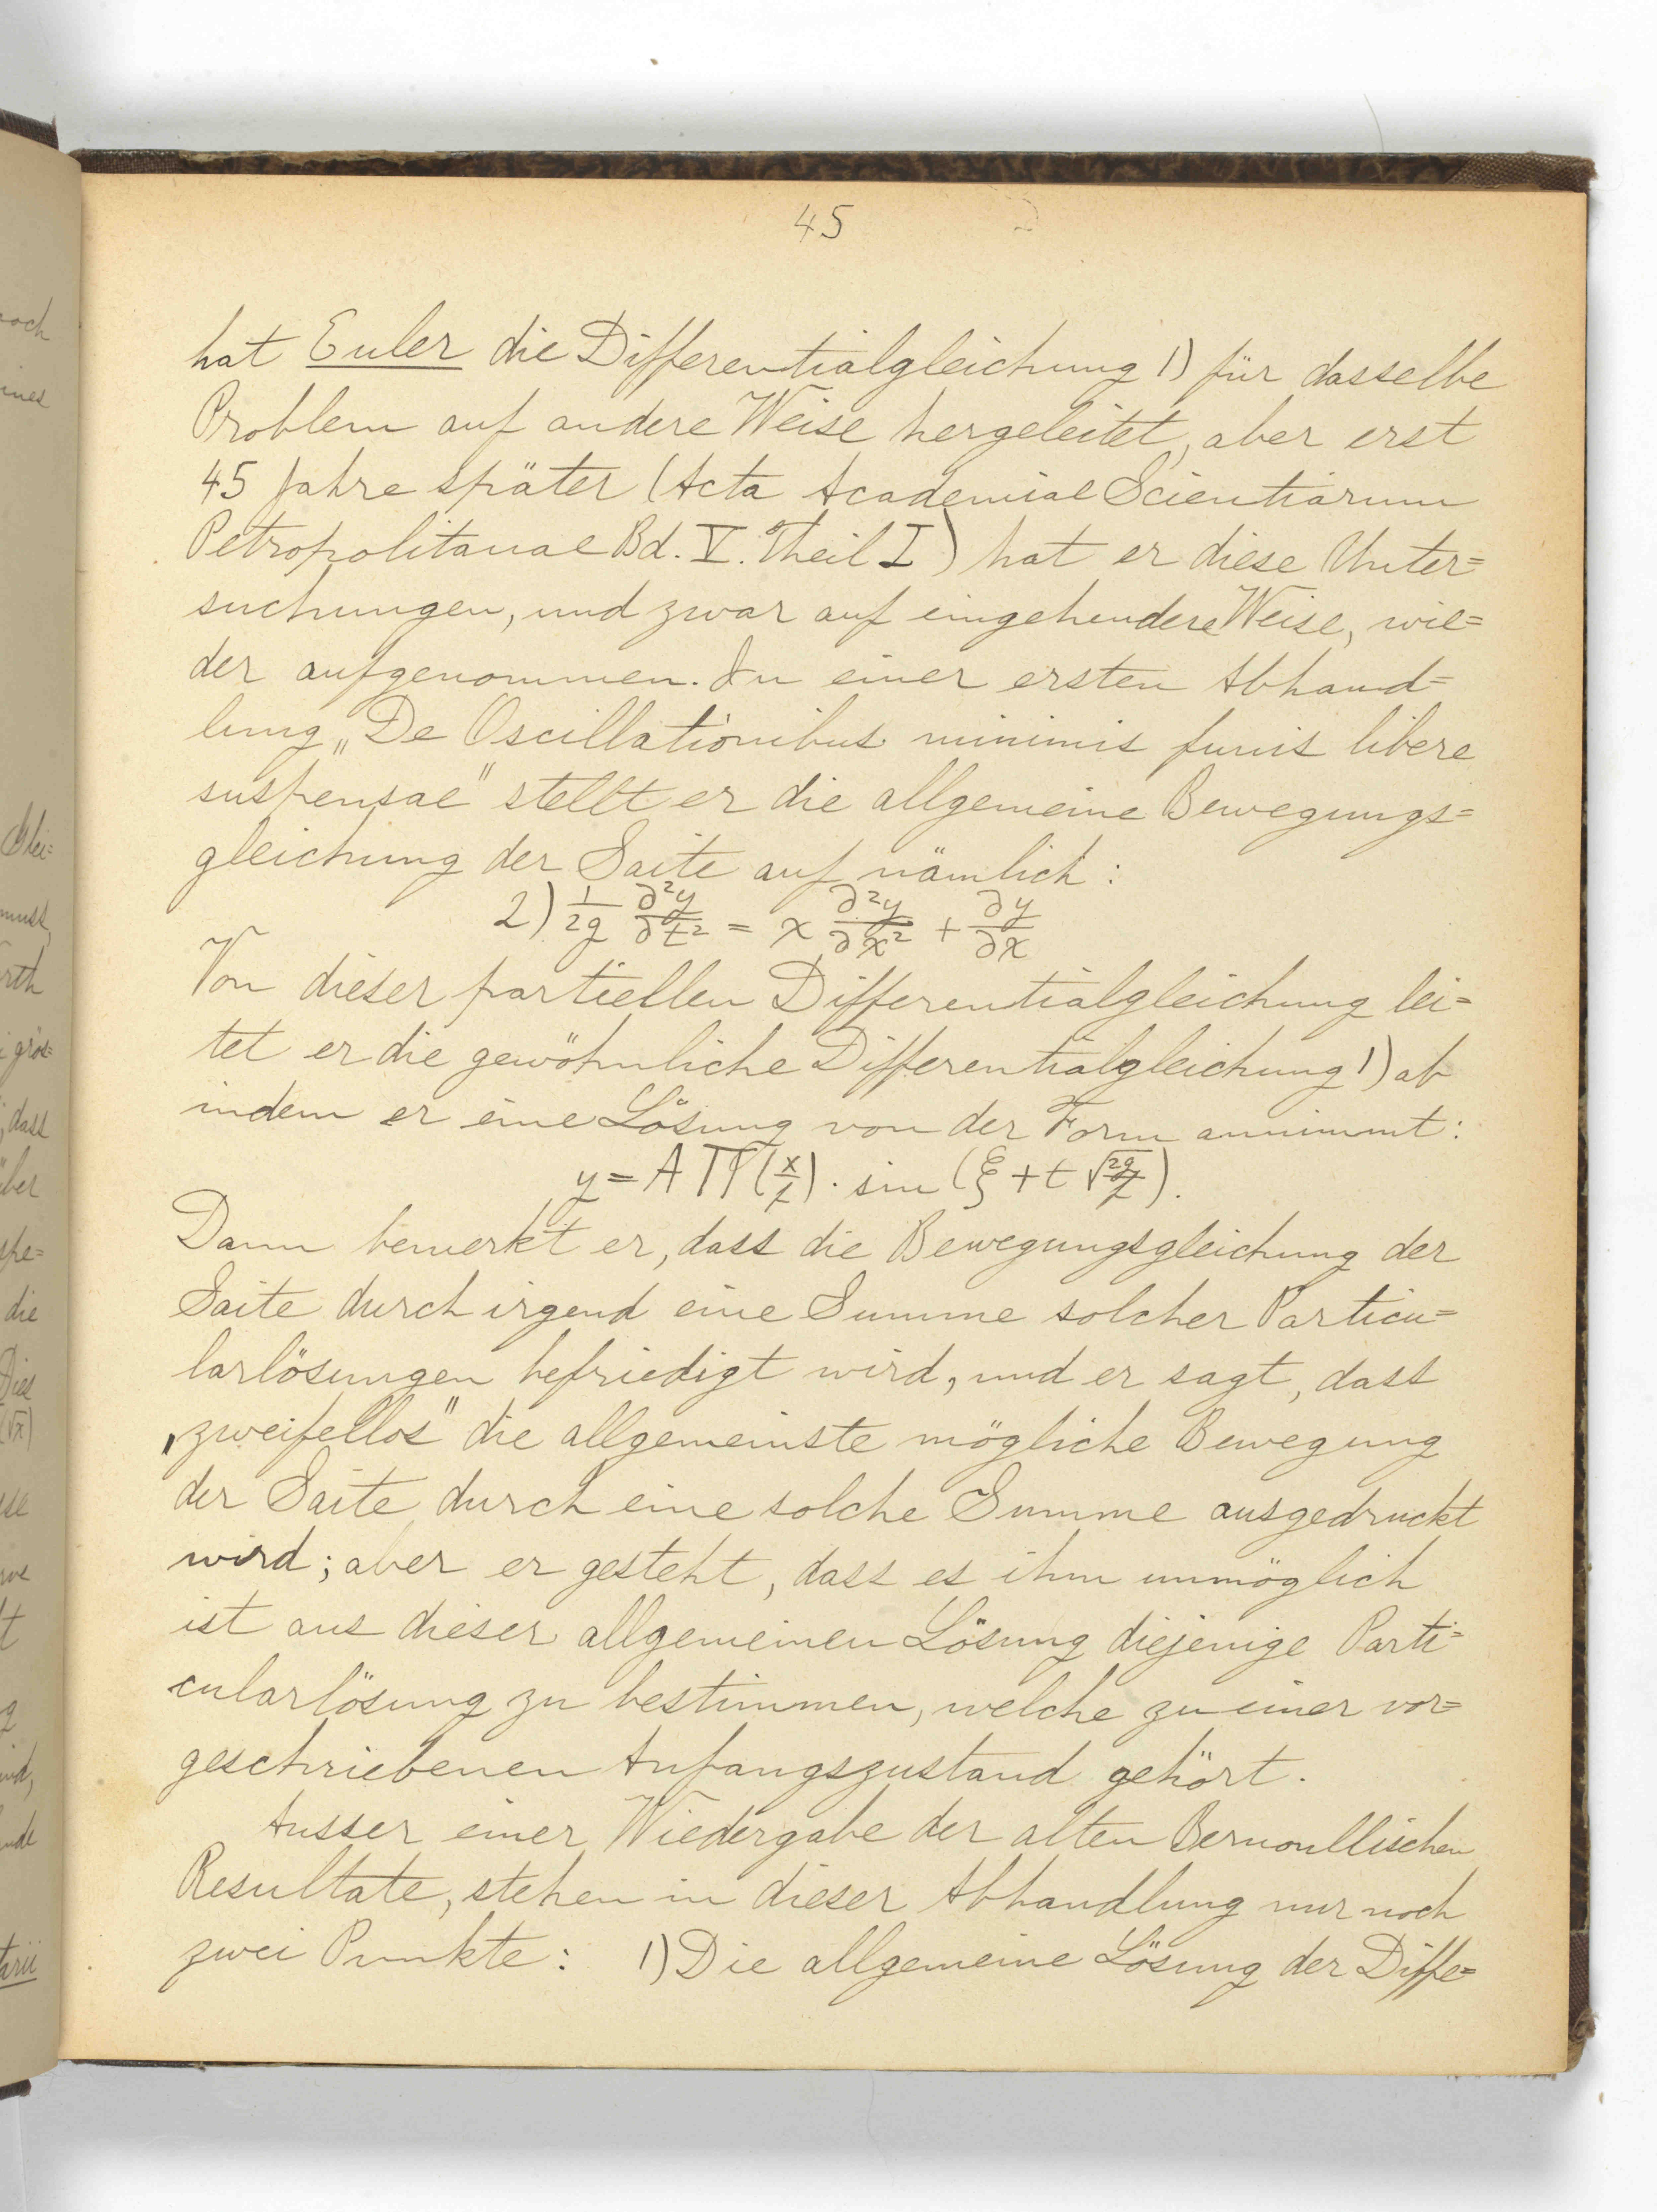 45
hat Euler die Differentialgleichung 1) für dasselbe
Problem auf andere Weise hergeleitet, aber erst
45 Jahre später (Acta Academiae Scientiarum
Petropolitanae Bd. V. Theil I) hat er diese Unter=
suchungen, und zwar auf eingehendere Weise, wie=
der aufgenommen. In einer ersten Abhand=
lung „De Oscillationibus minimis funis libere
suspensae" stellt er die allgemeine Bewegungs=
gleichung der Saite auf nämlich:
2) 1/2g ∂²y/∂t² = x ∂²y/∂x² + ∂y/∂x
Von dieser partiellen Differentialgleichung lei=
tet er die gewöhnliche Differentialgleichung 1) ab
indem er eine Lösung von der Form annimmt:
y = A Π (x/f) · sin (ξ + t √2g/f).
Dann bemerkt er, dass die Bewegungsgleichung der
Saite durch irgend eine Summe solcher Particu=
larlösungen befriedigt wird, und er sagt, dass
„zweifellos" die allgemeinste mögliche Bewegung
der Saite durch eine solche Summe ausgedruckt
wird; aber er gesteht, dass es ihm unmöglich
ist aus dieser allgemeinen Lösung diejenige Parti=
cularlösung zu bestimmen, welche zu einer vor=
geschriebenen Anfangszustand gehört.
Ausser einer Wiedergabe der alten Bernoullischen
Resultate, stehen in dieser Abhandlung nur noch
zwei Punkte: 1) Die allgemeine Lösung der Diffe=